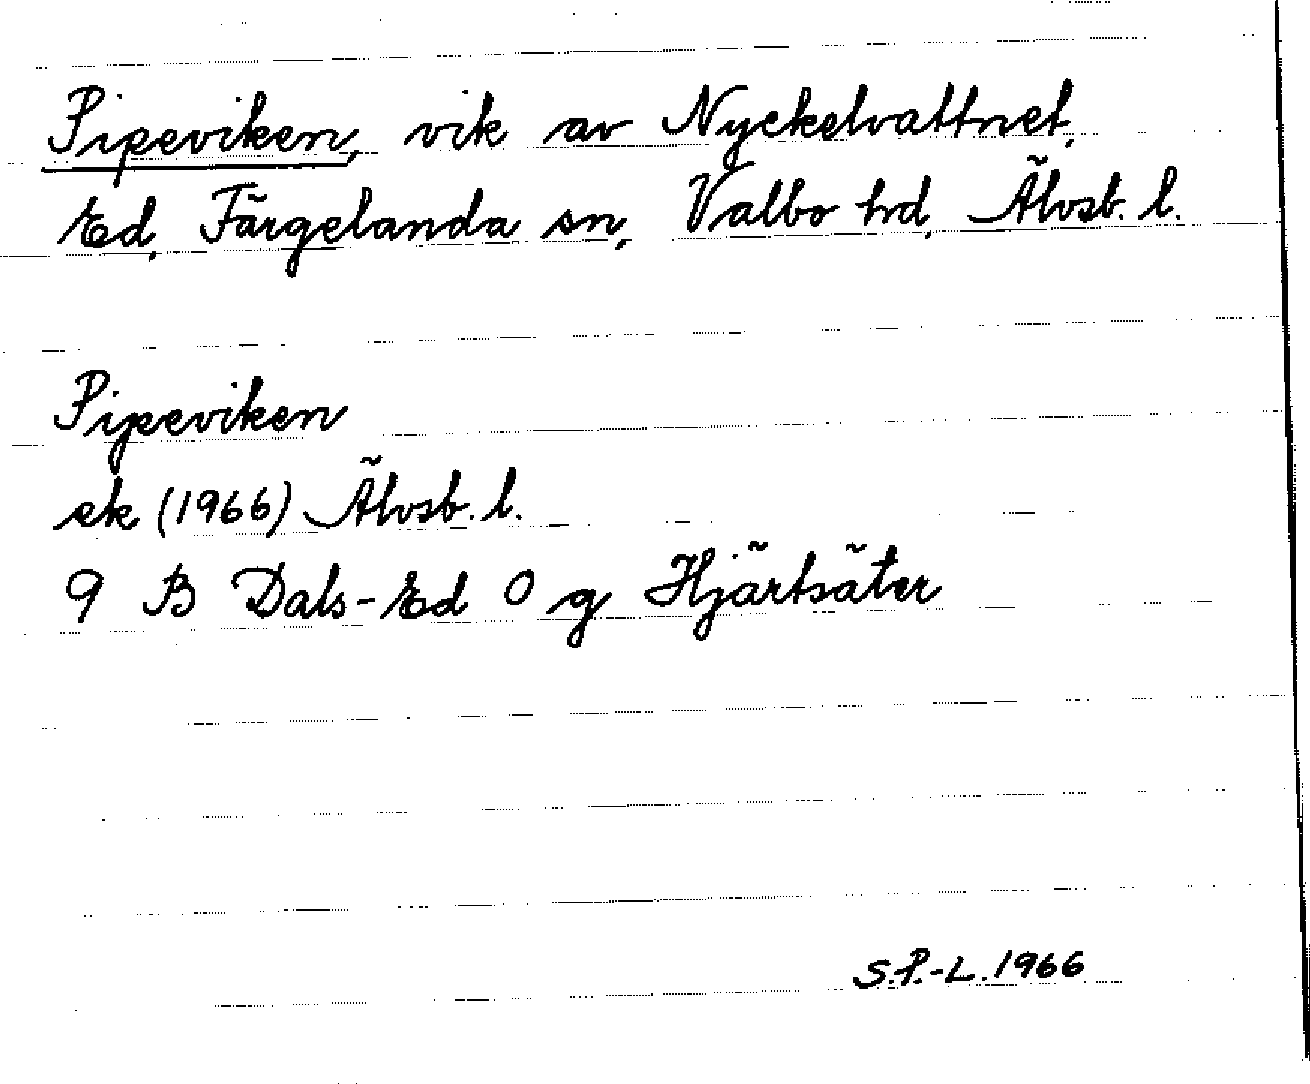 Pipeviken, vik av Nyckelvattnet,
Ed, Färgelanda sn, Valbo hd, Älvsb. l.
Pipeviken
ek (1966) Älvsb. l.
9 B Dals-Ed 0 g Hjärtsäter
S.P.-L. 1966